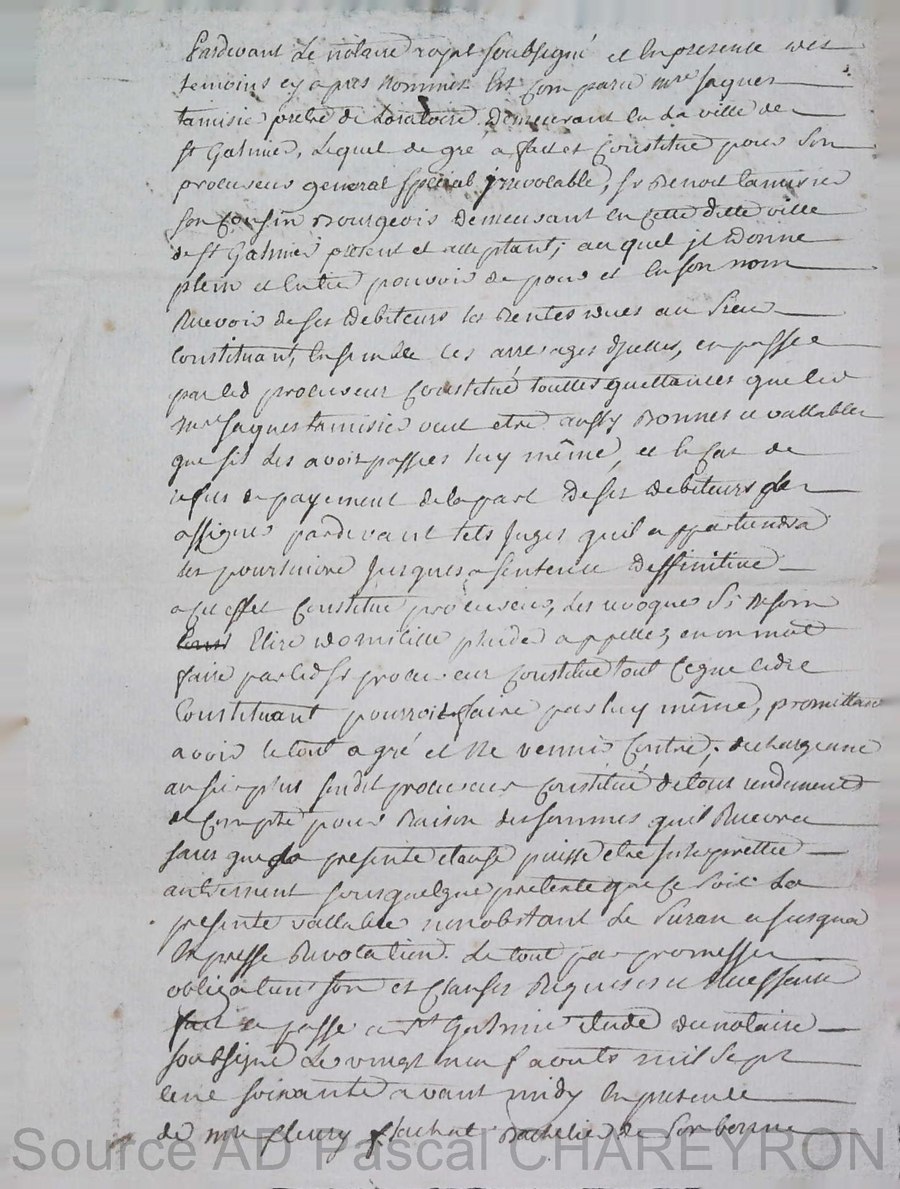 Pardevant Le notaire royal soubsigné et En presence des
temoins cy apres nommes Est Comparu mre jaques
tamisié pretre de Loratoire Demeurant En La ville de
st Galmier, Lequel de gré a fait et Constitué pour son
procureur general special irrevocable, sr Benoit tamisier
son Cousin Bourgeois Demeurant En Cette ditte ville
de st Galmier present et acceptant; auquel jl Donne
plein et Entier pouvoir de pour et En son nom
Recevoir de ses Debiteurs les Rentes dues au sieur
Constituant, Ensemble les arrerages djcelles, en passer
par led procureur Constitué touttes quittances que led
mre jaques tamisié veut etre aussy Bonnes et vallables
que sil Les avoit passées luy même, et le Cas de
refus de payement de la part De ses Debiteurs les
assigner pardevant tels juges quil appartiendra
les poursuivre jusques a sentence Deffinitive
a cet effet Constitué procureurs, les revoquer si Besoin
Elire Domicille plaider appeller, en un mot
faire par led sr procureur Constitué tout ce que ledit
Constituant pourroit faire par luy même, promettant
avoir le tout a gré et Ne venir Contre, dechargeant
au surplus sondit procureur Constitué de tout rendement
de Compte pour Raison des sommes quil Recevra
sans que la presente clause puisse etre interprettée
autrement sous quelque pretexte que Ce soit La
presente vallable nonobstant Le Suran et jusqua
Expresse Revocation. Le tout par promesses
obligations son et Clauses Requises et Necessaire
fait et passé a st Galmier Etude du notaire
soubsigné Le vingt neuf aouts mil sept
cent soixante avant midy En presence
de mre fleury flachat Bachelier de sorbonne
Source AD Pascal CHAREYRON